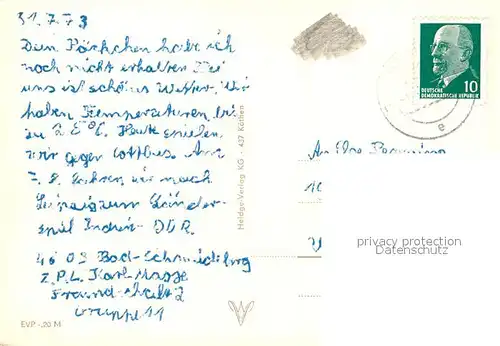 31.7.73
Dein Päckchen habe ich
noch nicht erhalten Bei
uns ist schönes Wetter. Wir
haben Temperaturen bis
zu 28°C. Heute spielen
wir gegen Cottbus. Am
7.8. fahren wir nach
Leipzig zum Länder-
spiel Indien-DDR.
4603 Bad-Schmiedeberg
Z.P.L. Karl-Marx
Freundschaft 2
Gruppe 11
EVP -,20 M
Heldge-Verlag KG · 437 Köthen
DEUTSCHE
DEMOKRATISCHE REPUBLIK
10
e
An
privacy protection
Datenschutz